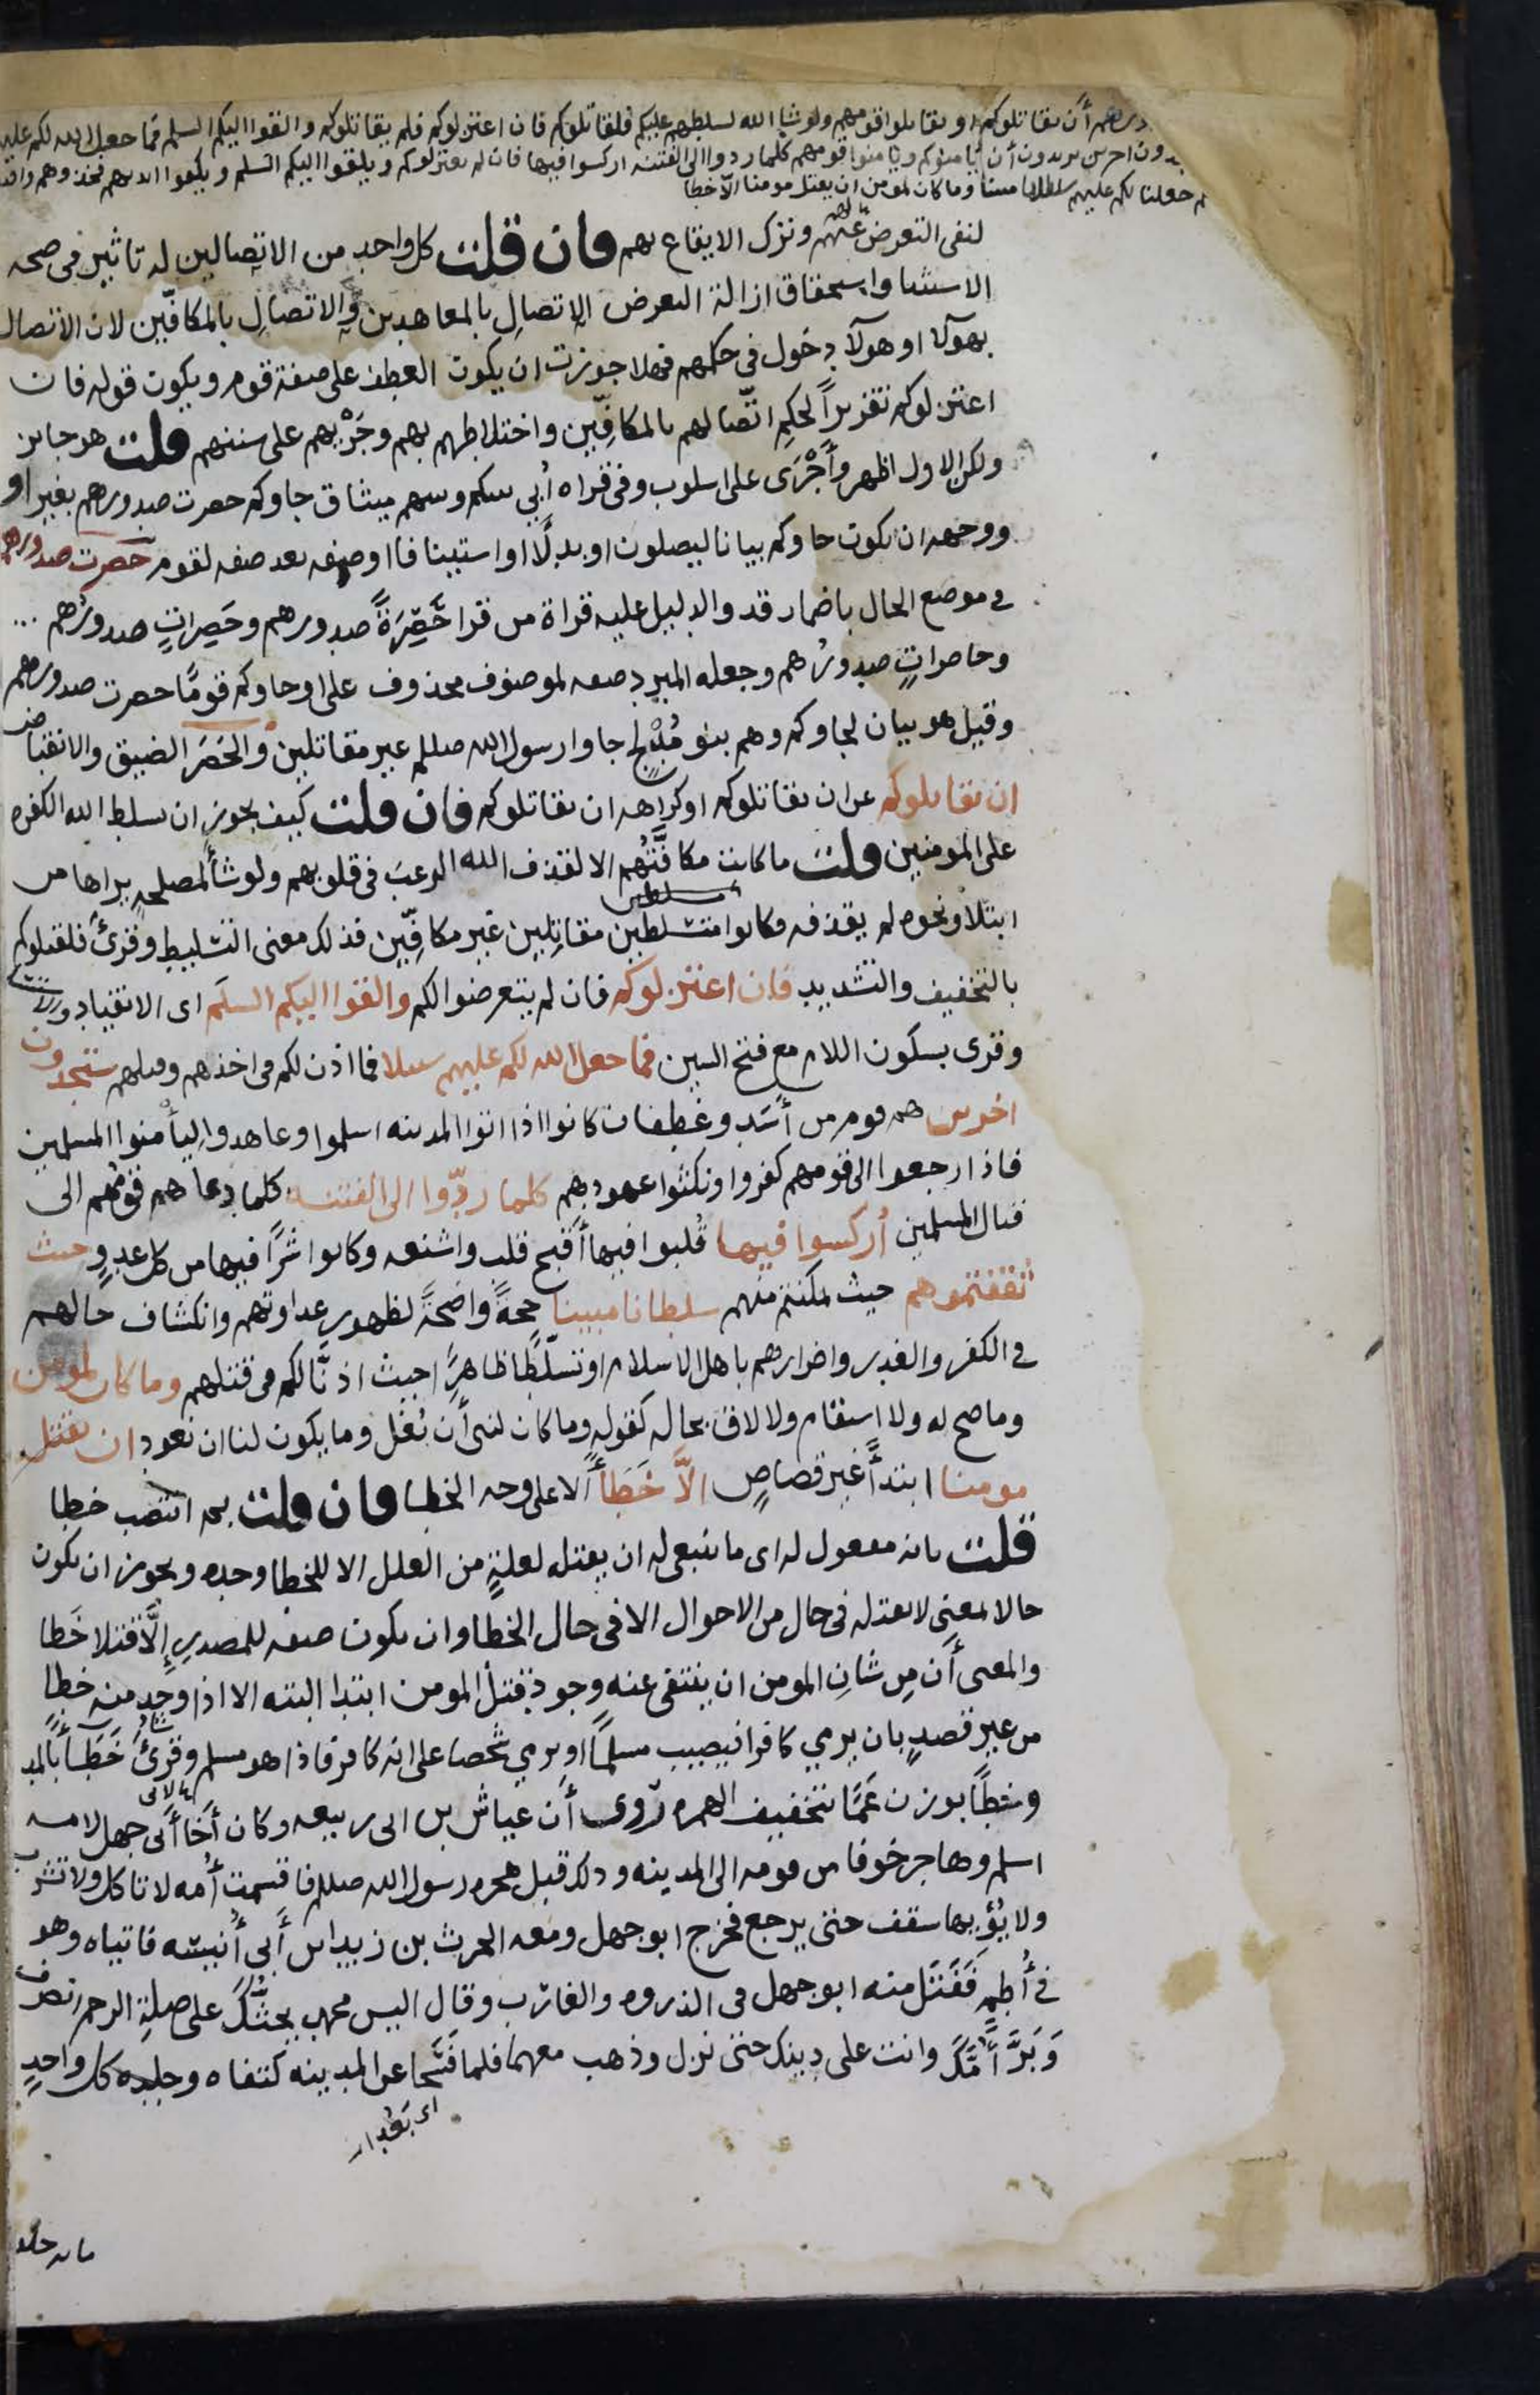 صدورهم أن يقاتلوكم او يقاتلوا قومهم ولو شا الله لسلطهم عليكم فلقاتلوكم فان اعتزلوكم فلم يقاتلوكم والقوا اليكم السلم فما جعل الله لكم عليهم
ستجدون اخرين يريدون أن يأمنوكم ويامنوا قومهم كلما ردوا الى الفتنه اركسوا فيها فان لم يعتزلوكم ويلقوا اليكم السلم ويكفوا ايديهم فخذوهم واقتلوهم
جعلنا لكم عليهم سلطانا مبينا وما كان لمومن ان يقتل مومنا الا خطا
لنفى التعرض عنهم وترك الايقاع بهم فان قلت كل واحد من الاتصالين له تاثير فى صحه
الاستثنا واستحقاق ازالة التعرض الاتصالِ بالمعاهدين والاتصالِ بالمكافّين لان الاتصال
بهولا او هولا دخول فى حكمهم فهلا جوزت ان يكون العطف على صفة قوم ويكون قوله فان
اعتزلوكم تقريرًا لحكم اتّصالهم بالمكافِّين واختلاطهم بهم وجَرْيهم على سننهم قلت هو جايز
ولكن الاول اظهر وأَجْرَى على اسلوب وفى قراه أُبي بينكم وبينهم ميثاق جاوكم حصرت صدورهم بغير او
ووجهه ان يكون جاوكم بيانا ليصلون او بدلًا او استينافا او صفه بعد صفه لقوم حصرت صدورهم
فى موضع الحال باضمار قد والدليل عليه قراة من قرا حَصِرَةً صدورهم وحَصِراتٍ صدورُهم
وحاصراتٍ صدورُهم وجعله المبرد صفه لموصوف محذوف على او جاوكم قومًا حصرت صدورهم
وقيل هو بيان لجاوكم وهم بنو مُدْلِج جاوا رسول الله صللم غير مقاتلين والحَصَر الضيق والانقباض
ان يقاتلوكم عن ان يقاتلوكم او كراهه ان يقاتلوكم فان قلت كيف يجوز ان يسلط الله الكفره
على المومنين قلت ما كانت مكافَّتُهم الا لقذف الله الرعبَ فى قلوبهم ولو شأ لمصلحةٍ يراها من
ابتلاء ونحوه لم يقذفه فكانوا متسلطين مقاتِلين غير مكافِّين فذلك معنى التسليط وقرئ فلقتلوكم
بالتخفيف والتشديد فان اعتزلوكم فان لم يتعرضوا لكم والقوا اليكم السلَم اى الانقياد والاستسلام
وقرى بسكون اللام مع فتح السين فما جعل الله لكم عليهم سبيلا فما اذن لكم فى اخذهم وقتلهم ستجدون
اخرين هم قوم من أَسَد وغطفان كانوا اذا اتوا المدينه اسلموا وعاهدوا ليأمنوا المسلمين
فاذا رجعوا الى قومهم كفروا ونكثوا عهودهم كلما ردّوا الى الفتنه كلما دعاهم قومُهم الى
قتال المسلمين أُركسوا فيها قُلبوا فيها أقبح قلب واشنعه وكانوا شرًّا فيها من كل عدوٍ حيث
ثقفتموهم حيث تمكنتم منهم سلطانا مبينا حجةً واضحةً لظهور عداوتهم وانكشاف حالهم
فى الكفر والغدر واضرارهم باهل الاسلام او تسلّطًا ظاهرًا حيث اذنَّا لكم فى قتلهم وما كان لمومن
وما صح له ولا استقام ولا لاق بحاله كقوله وما كان لنبى أن يُغل وما يكون لنا ان نعود ان يقتل
مومنا ابتدأً غير قصاصٍ الَّا خَطَأً الا على وجه الخطا فان قلت بم انتصب خطا
قلت بانه مفعول له اى ما ينبغى له ان يقتله لعلةٍ من العلل الا للخطا وحده ويجوز ان يكون
حالا بمعنى لا يقتله فى حال من الاحوال الا فى حال الخطا وان يكون صفه للمصدر إِلَّا قتلا خَطا
والمعنى أن مِن شان المومن ان ينتفى عنه وجود قتل المومن ابتدا البته الا اذا وجد منه خطأ
من غير قصدٍ بان يرمي كافرا فيصيب مسلمًا او يرمي شخصا على انه كافر فاذا هو مسلم وقرئ خَطَاءً بالمد
وخَطًا بوزن عَمًا بتخفيف الهمزه رُوى أن عياش بن ابى ربيعه وكان أخا أبى جهل لامه
اسلم وهاجر خوفا من قومه الى المدينه وذلك قبل هجره رسول الله صللم فاقسمت أُمه لا تاكل ولا تشرب
ولا يُؤيها سقف حتى يرجع فخرج ابو جهل ومعه الحرث بن زيد ابن أَبى أُنيسه فاتياه وهو
فى أُطمٍ فَفَتَل منه ابو جهل فى الذروه والغارب وقال اليس محمد يحثّك على صلةِ الرحم انصرف
وَبَرَّ أُمَّكَ وانت على دينك حتى نزل وذهب معهما فلما فَسَحا عن المدينه كتفاه وجلده كل واحدٍ
اى بَعُدا
مايه جلده